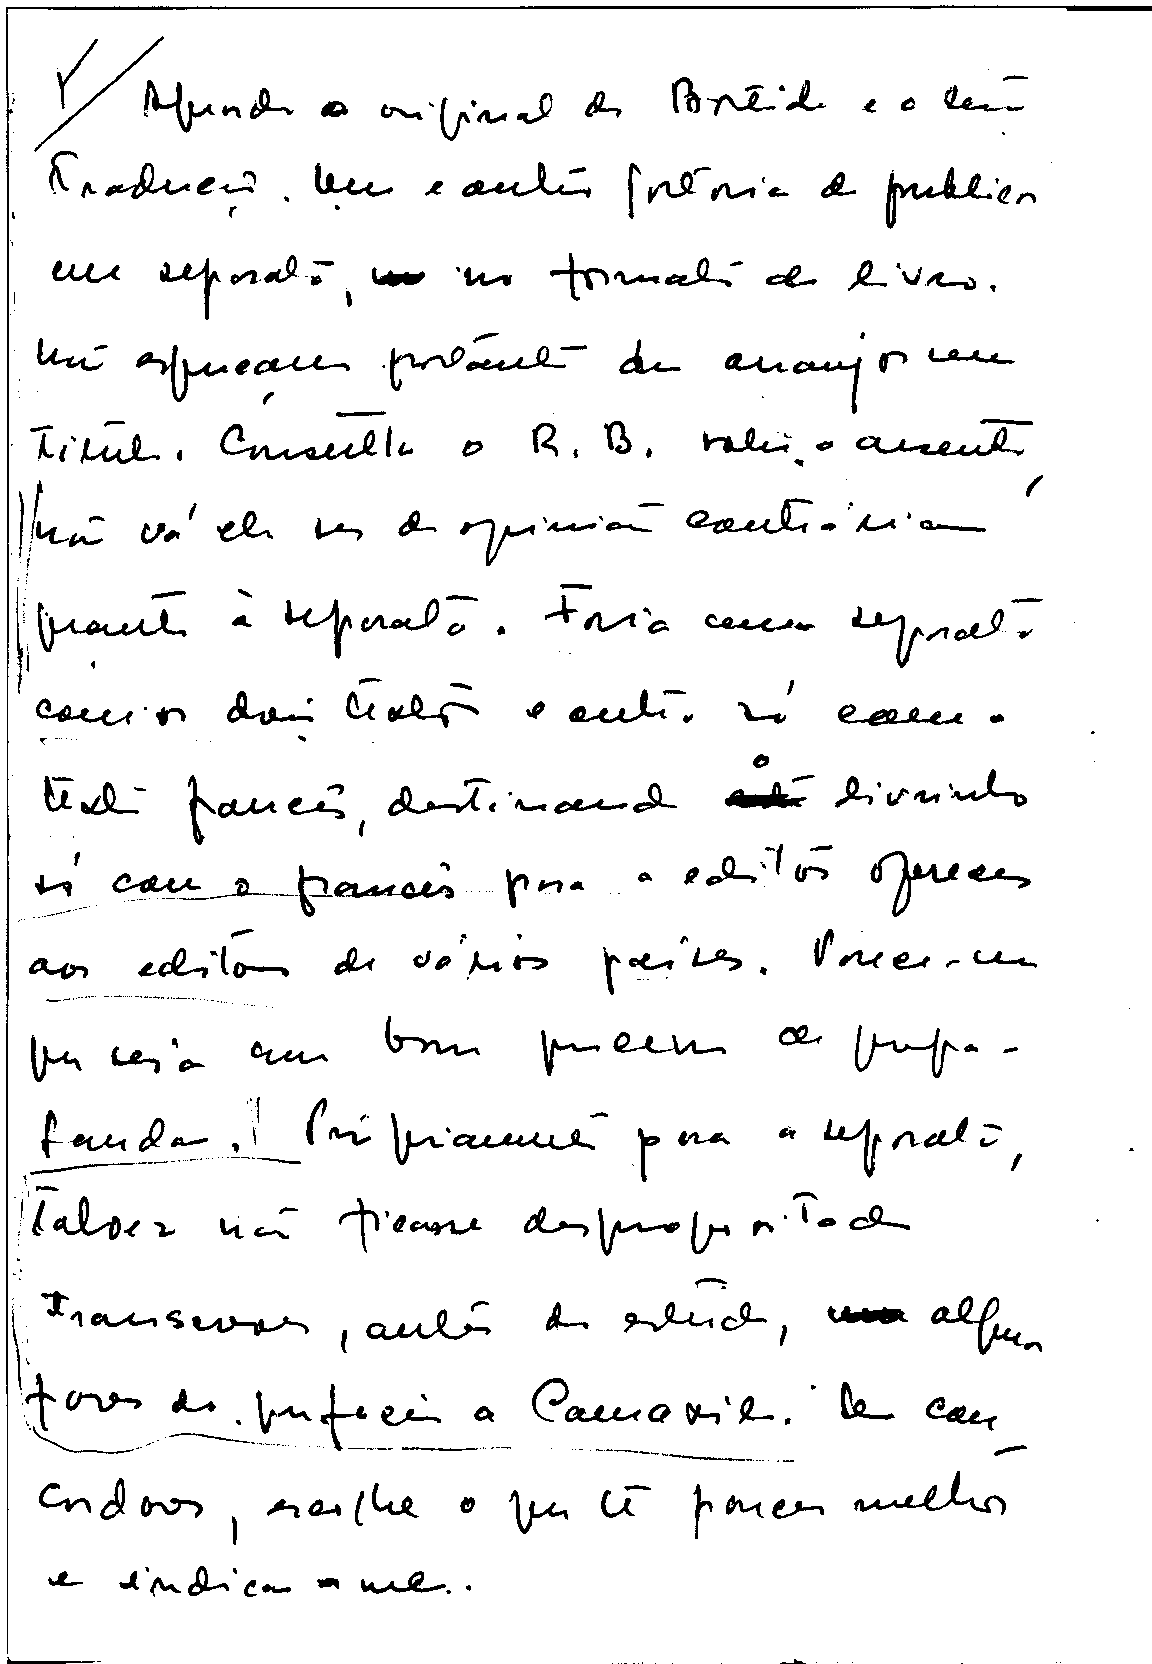 Aguardo o original do Bastide e a sua
tradução. Um e outro gostaria de publicar
em separata, no formato de livro.
Não esqueçam portanto de arranjar um
título. Consulta o R. B. sobre o assunto,
não vá ele ser de opinião contrária
quanto à separata. Faria uma separata
com os dois textos e outra só com o
texto francês, destinando o livrinho
só com o francês para a editora oferecer
aos editores de vários países. Parece-me
que seja um bom processo de propa-
ganda. Propriamente para a separata,
talvez não ficasse despropositado
transcrever, antes do estudo, algumas
do prefácio a Camaxilo. Se con
cordares, escolhe o que te parecer melhor
e indica-me.